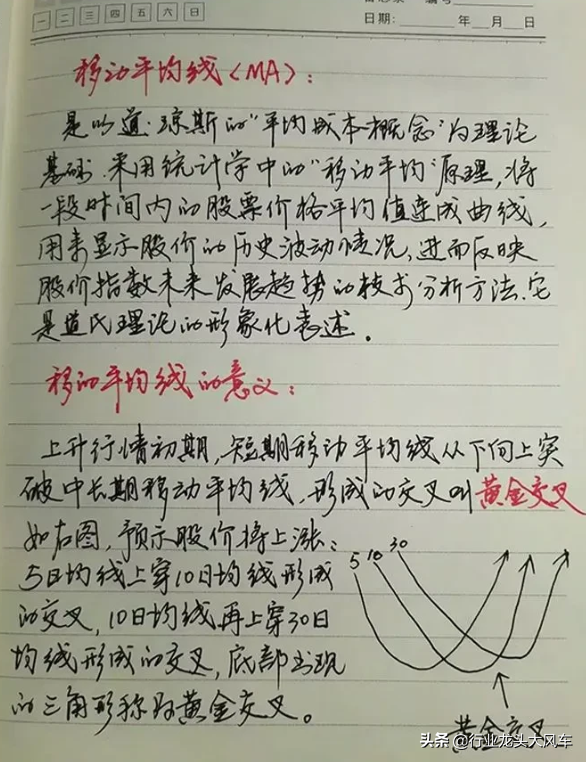 一 二 三 四 五 六 日
日期: 年 月 日
移动平均线（MA）：
是以道·琼斯的"平均成本概念"为理论
基础，采用统计学中的"移动平均"原理，将
一段时间内的股票价格平均值连成曲线，
用来显示股价的历史波动情况，进而反映
股价指数未来发展趋势的技术分析方法。它
是道氏理论的形象化表述。
移动平均线的意义：
上升行情初期，短期移动平均线从下向上突
破中长期移动平均线，形成的交叉叫黄金交叉
如右图，预示股价将上涨：
5日均线上穿10日均线形成
的交叉，10日均线再上穿30日
均线形成的交叉，底部出现
的三角形称为黄金交叉。
5 10 30
黄金交叉
头条 @行业龙头大风车